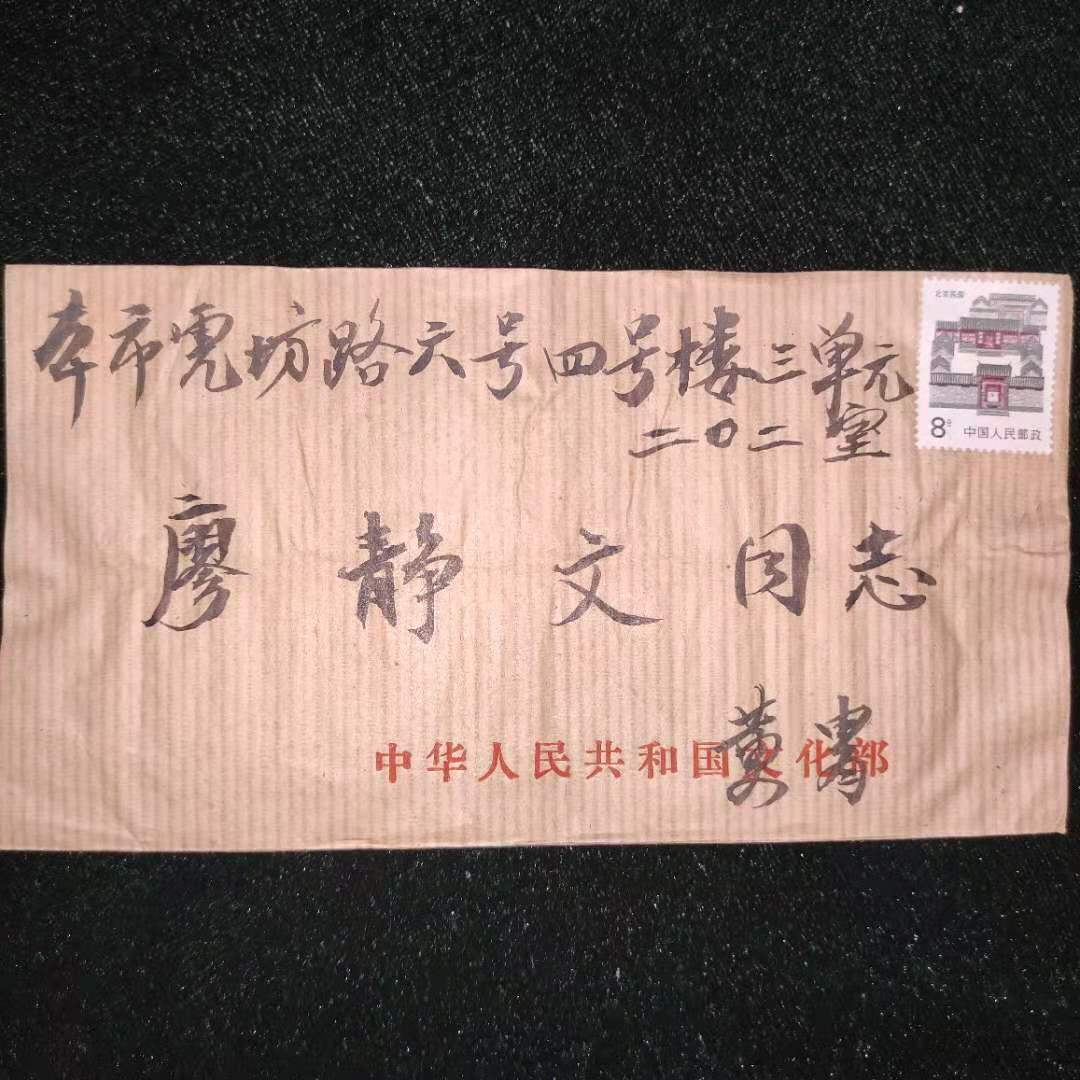 本市虎坊路六号四号楼三单元
二〇二室
北京民居
8分 中国人民邮政
廖静文同志
黄胄
中华人民共和国文化部